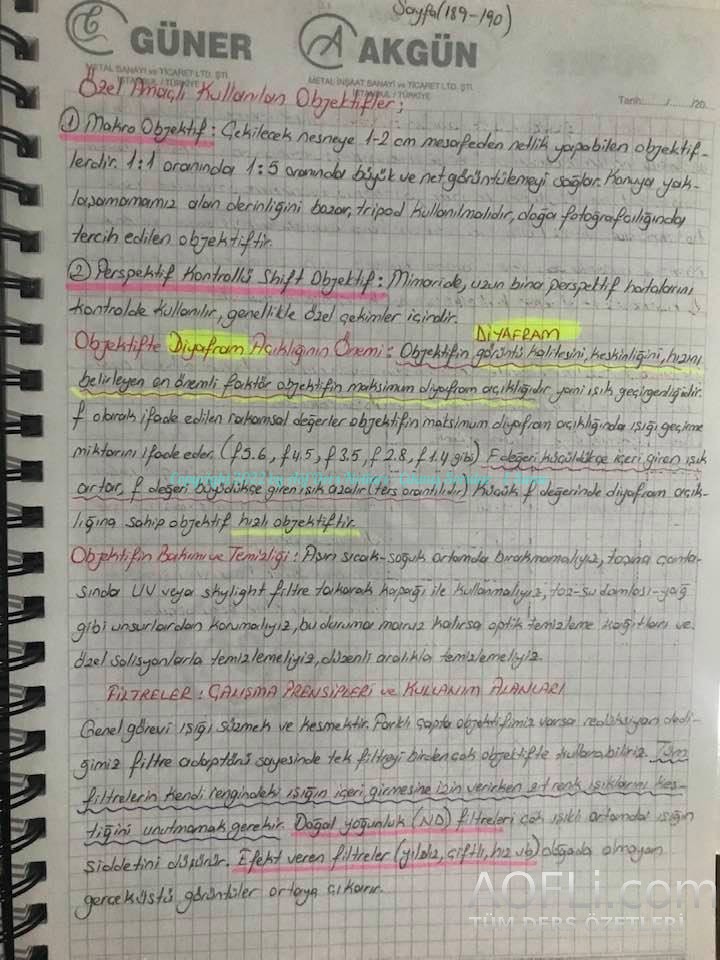 Sayfa (189-190)
GÜNER
AKGÜN
METAL SANAYİ ve TİCARET LTD. ŞTİ.
İSTANBUL / TÜRKİYE
METAL İNŞAAT SANAYİ ve TİCARET LTD. ŞTİ.
İSTANBUL / TÜRKİYE
Tarih: / /20
Özel Amaçlı Kullanılan Objektifler;
① Makro Objektif: Çekilecek nesneye 1-2 cm mesafeden netlik yapabilen objektif-
lerdir. 1:1 oranında 1:5 oranında büyük ve net görüntülemeyi sağlar. Konuya yak-
laşamamamız alan derinliğini bozar, tripod kullanılmalıdır, doğa fotoğrafçılığında
tercih edilen objektiftir.
② Perspektif Kontrollü Shift Objektif: Mimaride, uzun bina perspektif hatalarını
kontrolde kullanılır, genellikle özel çekimler içindir.
DİYAFRAM
Objektifte Diyafram Açıklığının Önemi: Objektifin görüntü kalitesini, keskinliğini, hızını
belirleyen en önemli faktör objektifin maksimum diyafram açıklığıdır yani ışık geçirgenliğidir.
f olarak ifade edilen rakamsal değerler objektifin maksimum diyafram açıklığında ışığı geçirme
miktarını ifade eder. (f 5.6, f 4.5, f 3.5, f 2.8, f 1.4 gibi) F değeri küçüldükçe içeri giren ışık
artar, f değeri büyüdükçe giren ışık azalır (ters orantılıdır) Küçük f değerinde diyafram açık-
lığına sahip objektif hızlı objektiftir.
Objektifin Bakımı ve Temizliği: Aşırı sıcak-soğuk ortamda bırakmamalıyız, taşıma çanta-
sında UV veya skylight filtre takarak kapağı ile kullanmalıyız, toz-su damlası-yağ
gibi unsurlardan korumalıyız, bu duruma maruz kalırsa optik temizleme kağıtları ve
özel solisyonlarla temizlemeliyiz, düzenli aralıkla temizlemeliyiz.
FİLTRELER: ÇALIŞMA PRENSİPLERİ ve KULLANIM ALANLARI
Genel görevi ışığı süzmek ve kesmektir. Farklı çapta objektifimiz varsa redüksiyon dedi-
ğimiz filtre adaptörü sayesinde tek filtreyi birden çok objektifte kullanabiliriz. Tüm
filtrelerin kendi rengindeki ışığın içeri girmesine izin verirken zıt renk ışıklarını kes-
tiğini unutmamak gerekir. Doğal yoğunluk (ND) filtreleri çok ışıklı ortamda ışığın
şiddetini düşürür. Efekt veren filtreler (yıldız, çiftli, hız vb) doğada olmayan
gerçeküstü görüntüler ortaya çıkarır.
AOFLi.com
TÜM DERS ÖZETLERİ